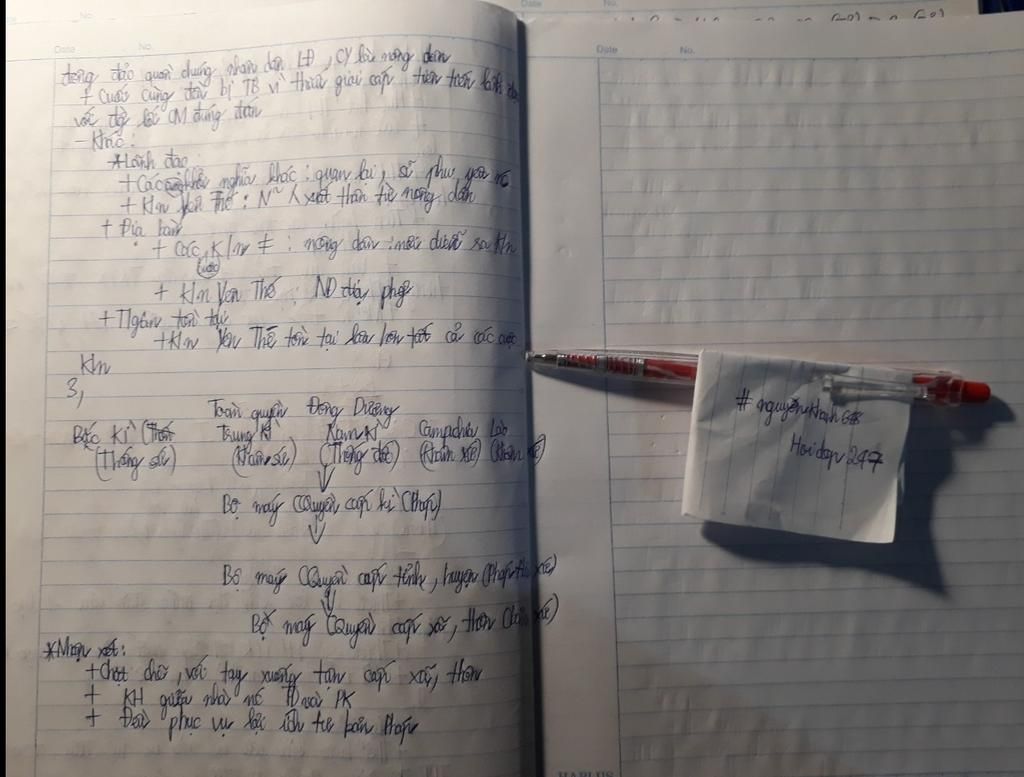 Date No.
đông đảo quần chúng nhân dân LĐ, CY là nông dân
+ Cuối cùng đều bị TB vì thiếu giai cấp tiên tiến lãnh đạo
với đg lối CM đúng đắn
- Khác:
*Lãnh đạo:
+ Các khởi nghĩa khác: quan lại, sĩ phu yêu nc
+ K/n Yên Thế: N~ ng xuất thân từ nông dân
+ Địa bàn
+ Các K/n ≠ : nông dân: nơi diễn ra K/n
(cuộc)
+ K/n Yên Thế : NĐ địa phg
+ Tgian tồn tại
+ K/n Yên Thế tồn tại lâu hơn tất cả các cuộc
K/n
3,
Toàn quyền Đông Dương
Bắc Kì Trung Kì Nam Kì Campuchia Lào
(Thống sứ) (Khâm sứ) (Thống đốc) (Khâm sứ) (Khâm sứ)
Bộ máy CQuyền cấp kì (Pháp)
Bộ máy CQuyền cấp tỉnh, huyện (Pháp + bản xứ)
Bộ máy CQuyền cấp xã, thôn (bản xứ)
*Nhận xét:
+ Chặt chẽ, với tay xuống tận cấp xã, thôn
+ KH giữa nhà nc TD và PK
+ Đều phục vụ lợi ích tư bản Pháp
Date No.
# nguyenkhanh68
Hoidap 247
HAPLUS